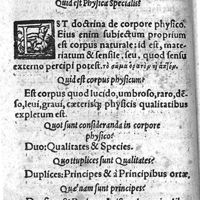 Quid est Physica Specialis?
EST doctrina de corpore physico.
Eius enim subiectum proprium
est corpus naturale: id est, mate-
riatum & sensile, seu, quod sensu
externo percipi potest.
Quid est corpus physicum?
Est corpus quod lucido, umbroso, raro, den-
so, leui, graui, cæterisq; physicis qualitatibus
expletum est.
Quot sunt consideranda in corpore
physico?
Duo: Qualitates & Species.
Quotuplices sunt Qualitates?
Duplices: Principes & à Principibus ortæ.
Quænam sunt principes?